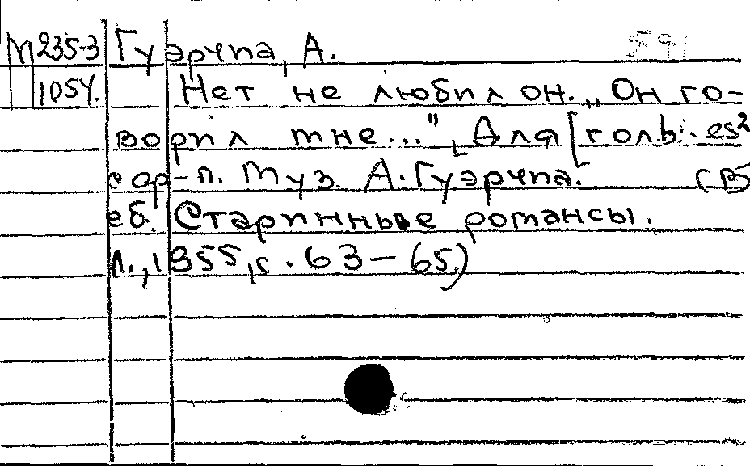 М 235-3 Гуэрчиа, А.
1054. Нет не любил он. „Он го-
ворил мне...", Для [голь. es²
с ф-п. Муз. А. Гуэрчиа. (В
сб. Старинные романсы.
Л., 1955, с. 63-65)